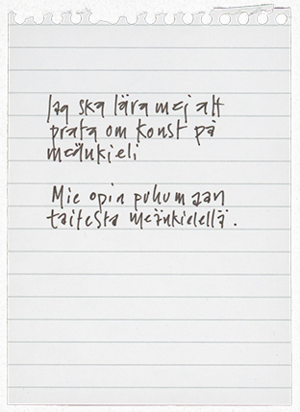 Jag ska lära mej att
prata om konst på
meänkieli
Mie opin puhumaan
taitesta meänkielellä.